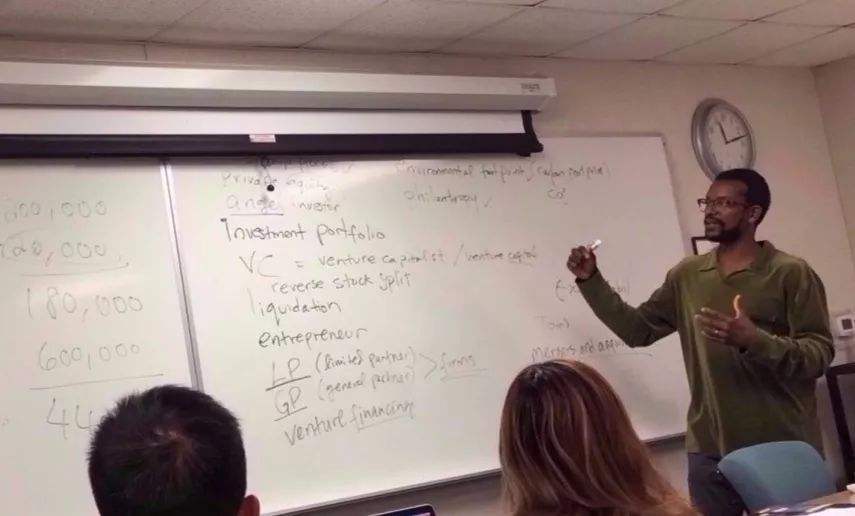 00,000
20,000,
180,000
600,000
44
Private Equity
angel investor
Investment portfolio
VC = venture capitalist / venture capital
reverse stock split
liquidation
entrepreneur
LP (limited partner) > firms
GP (general partner)
venture financing
environmental footprint / carbon footprint
philanthropy
CO²
Mergers and